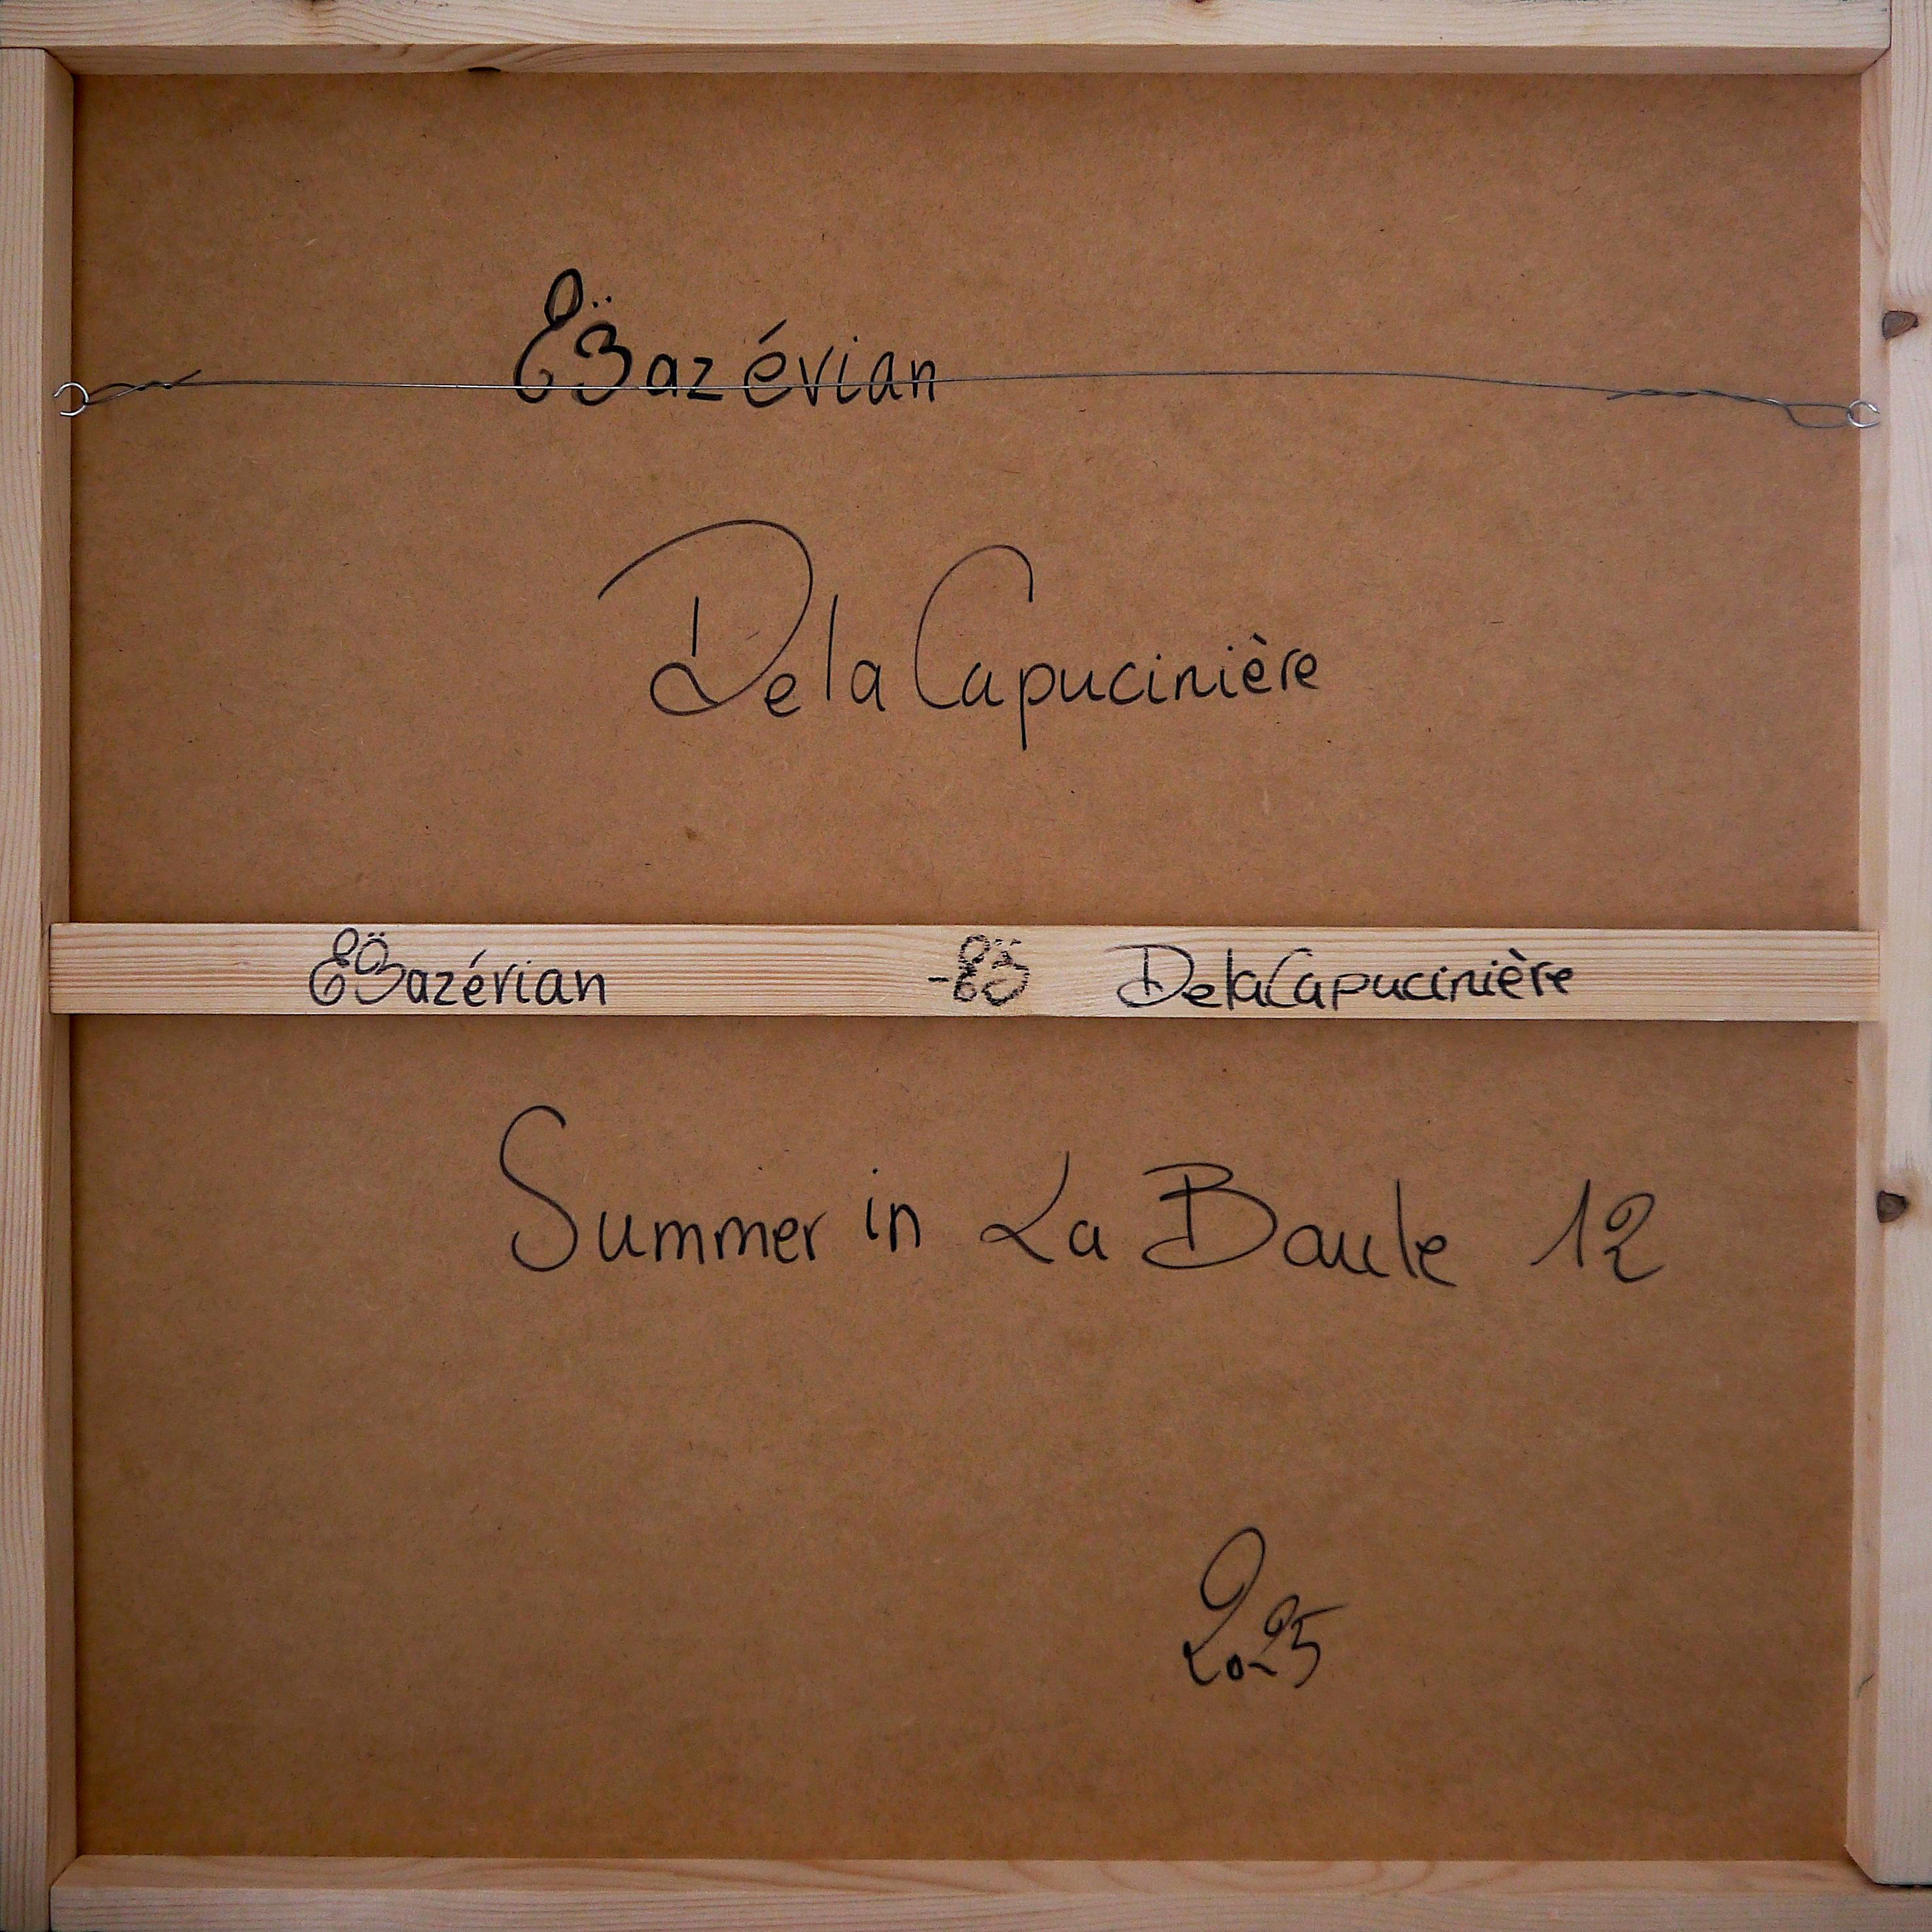 EBazévian
DelaCapucinière
EBazévian - EB DelaCapucinière
Summer in La Baule 12
2025